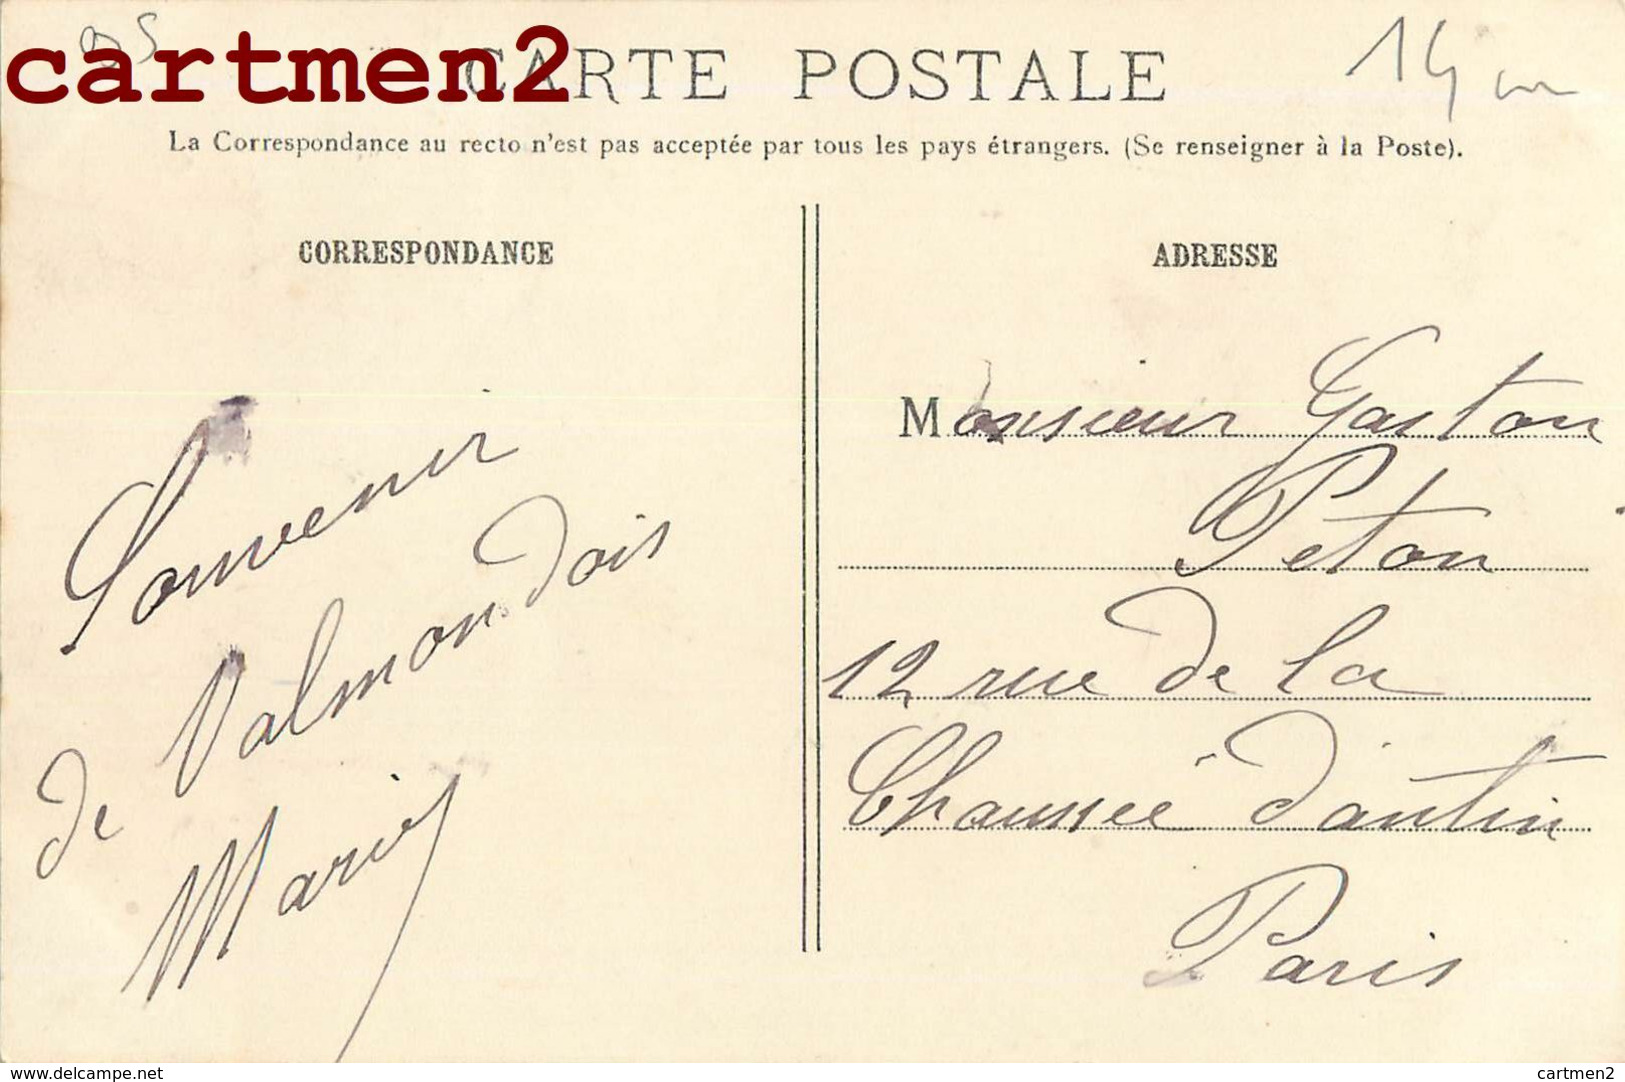 95
cartmen2
CARTE POSTALE
14
La Correspondance au recto n'est pas acceptée par tous les pays étrangers. (Se renseigner à la Poste).
CORRESPONDANCE
Souvenir
de Valmondois
ADRESSE
Monsieur Gaston
Peton
12 rue de la
Chaussée d'antin
Paris
www.delcampe.net
cartmen2